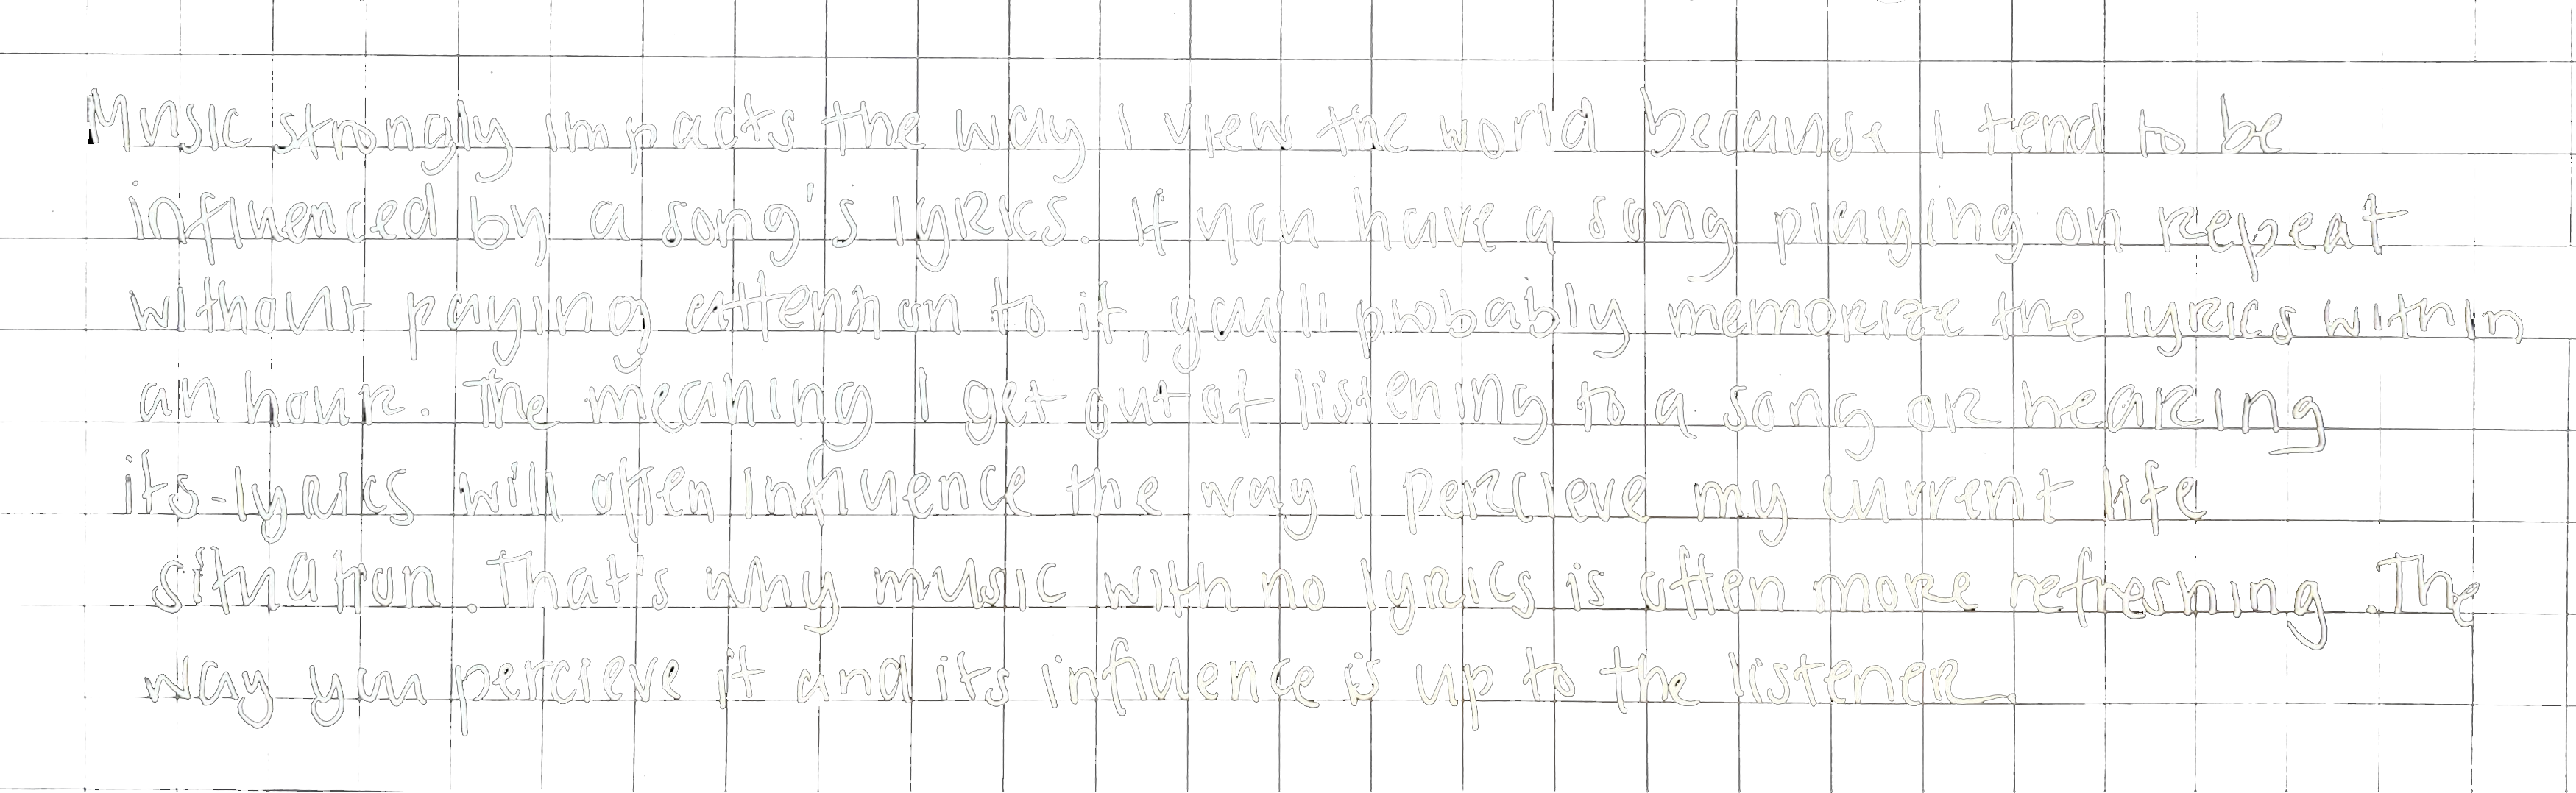 Music strongly impacts the way I view the world because I tend to be
influenced by a song's lyrics. If you have a song playing on repeat
without paying attention to it, you'll probably memorize the lyrics within
an hour. The meaning I get out of listening to a song or hearing
its lyrics will often influence the way I percieve my current life
situation. That's why music with no lyrics is often more refreshing. The
way you percieve it and its influence is up to the listener.